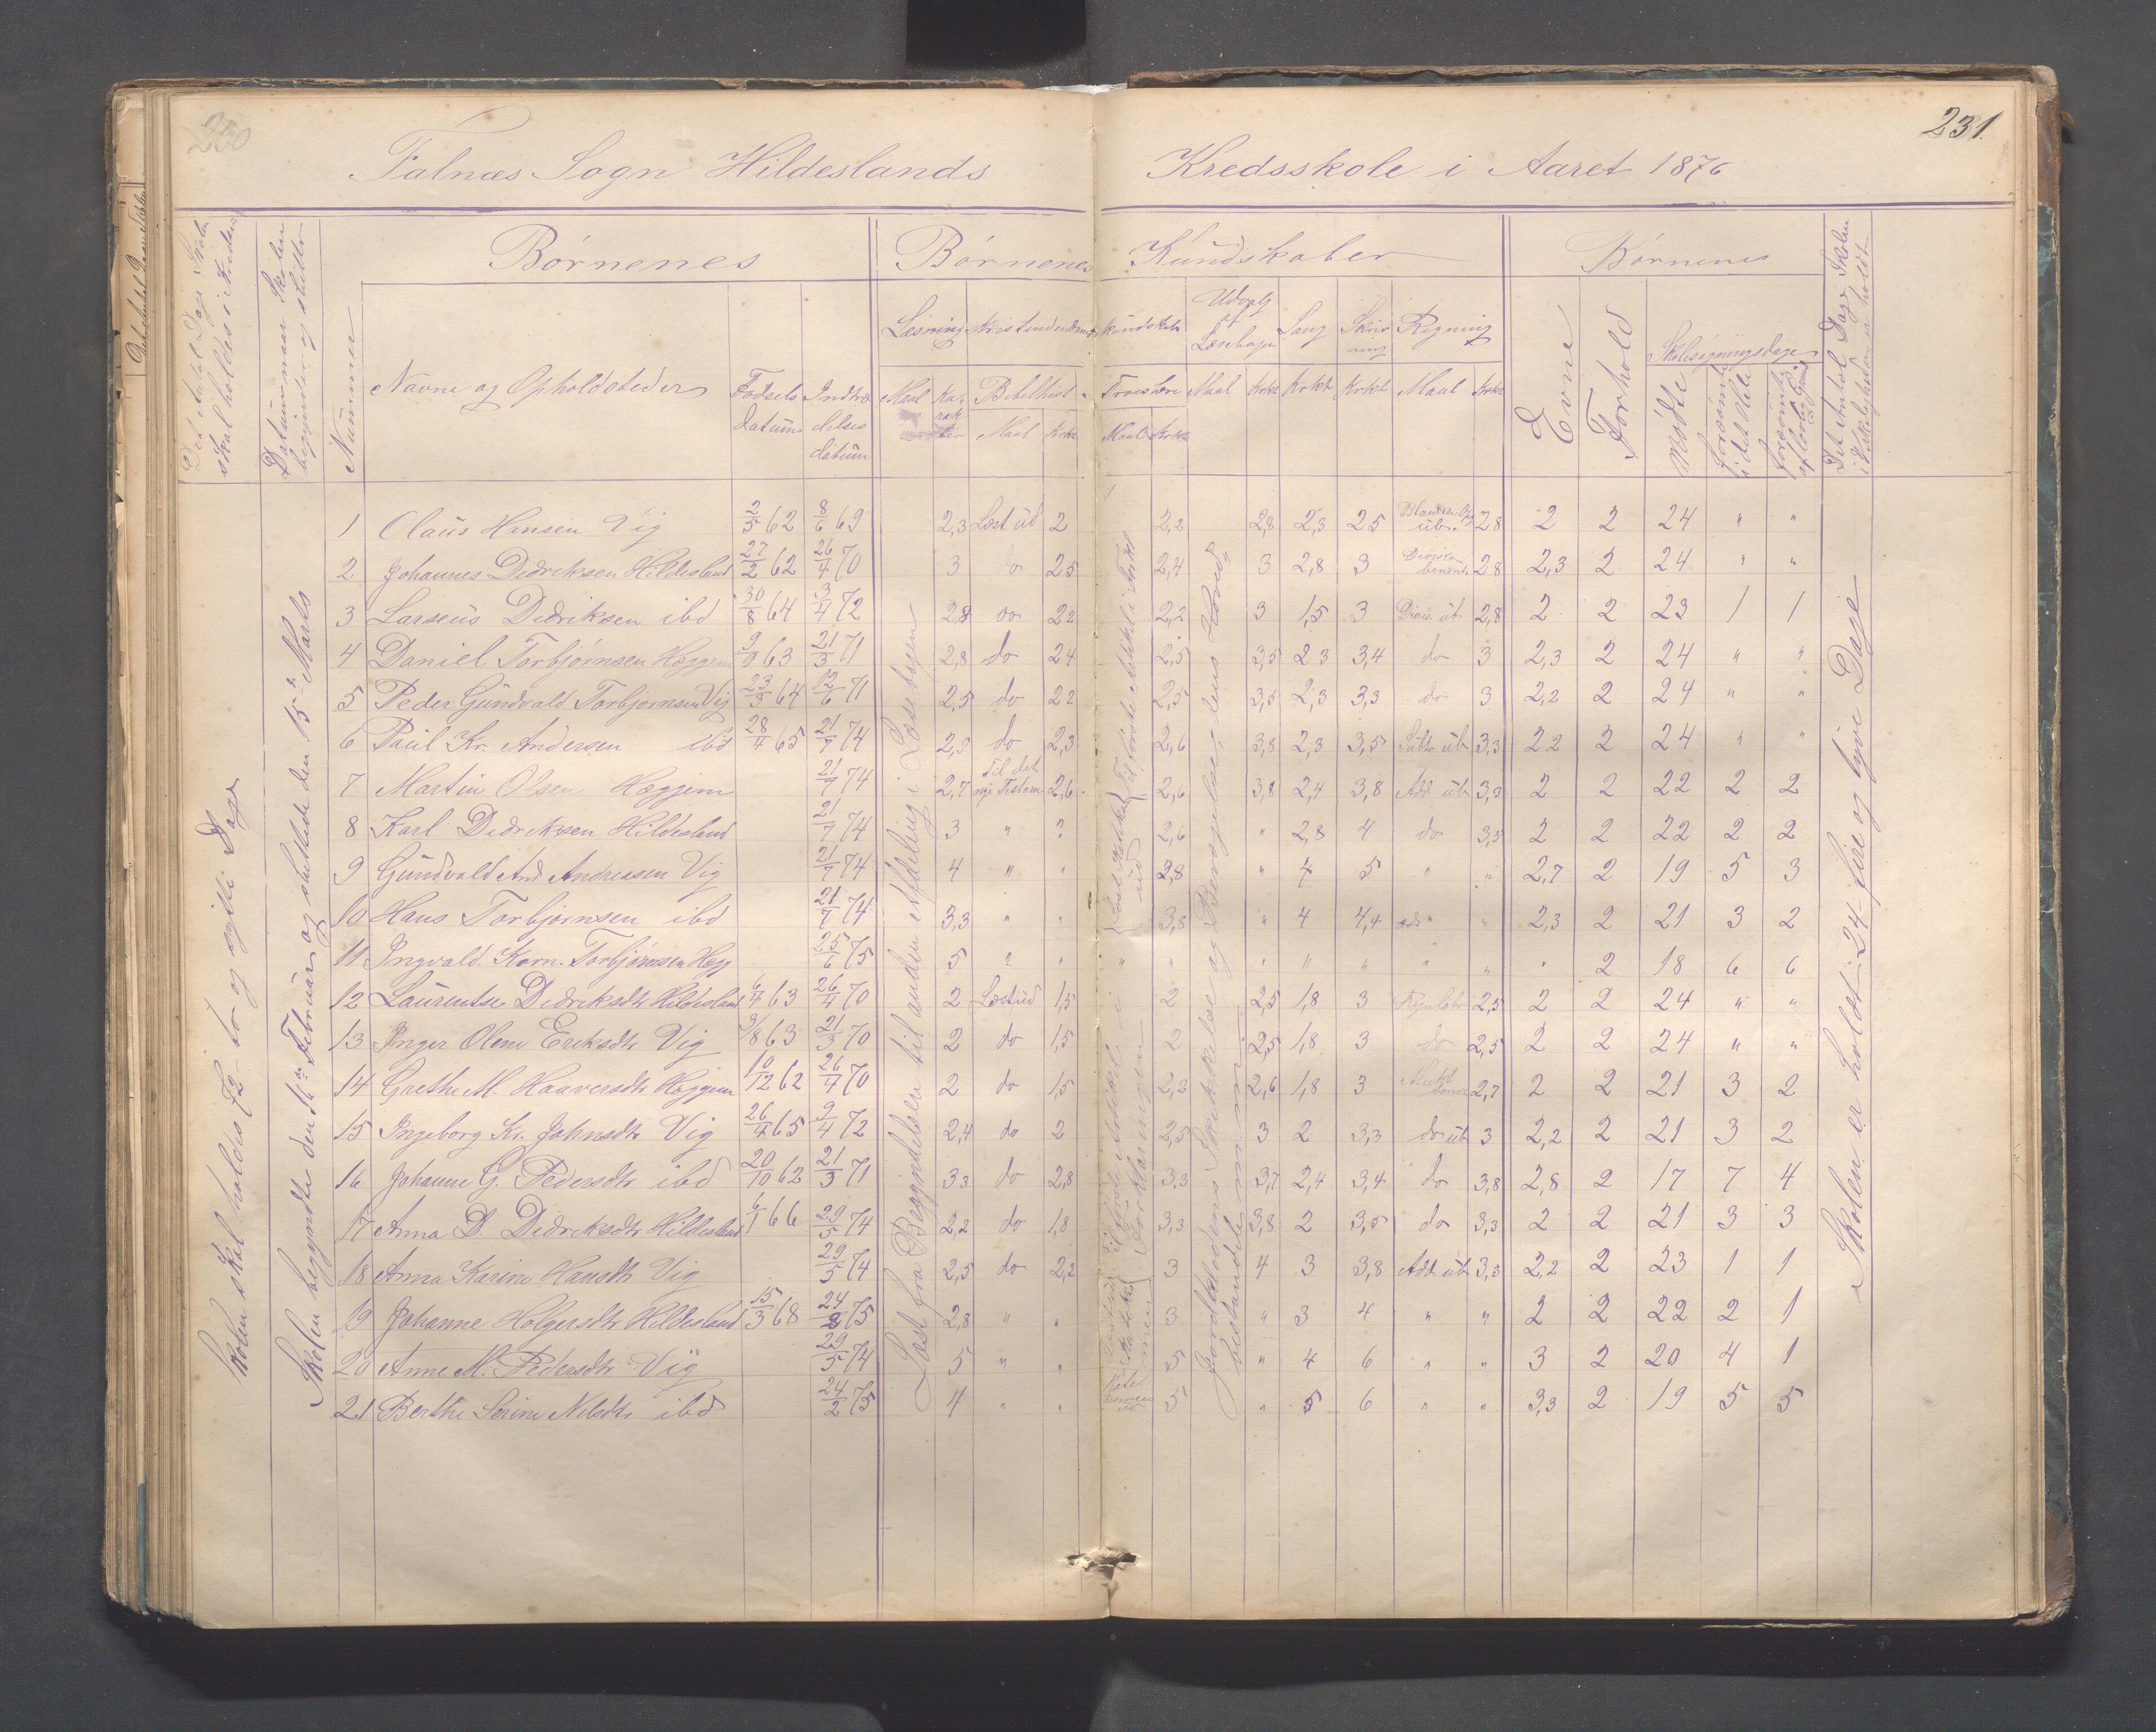 230
231.
Falnæs Sogn Hildeslands Kredsskole i Aaret 1876
Det Antal Dage Skole skal holdes i Kredsen
Datum naar Skolen begynder og slutter
Nummer
Børnenes
Navne og Opholdsteder
Fødsels datum
Indtrædelses datum
Børnenes Kundskaber
Læsning
Maal
Karakter
Kristendoms kundskab
Bibelhist.
Maal
Krkt
Troeslære
Maal
Krkt
Udvalg af Læsebogen
Maal
Krkt
Sang
Krkt
Skrivning
Krkt
Regning
Maal
Krkt
Børnenes
Evne
Forhold
Skolesøgningsdage
Mødte
forsømte i det Hele
forsømte af lovlig Grund
Det Antal Dage Skolen i Virkeligheden er holdt
Skolen skal holdes 72 to og sytti Dage
Skolen begyndte den 16de Februar og sluttede den 15de Marts
Læst fra Begyndelsen til anden Afdeling i Læsebogen
Jordklodens Skikkelse og Bevægelse, dens Hoved bestanddele
Skolen er holdt 24 fire og tyve Dage
1 Olaus Hansen Vig 2/5 62 8/6 69 2,3 Læst ud 2 2,2 2,8 2,3 25 ub. 28 2 2 24 " "
2 Johannes Didriksen Hildesland 27/2 62 26/4 70 3 do 25 2,4 3 2,8 3 28 2,3 2 24 " "
3 Larseus Didriksen ibd 30/8 64 3/4 72 28 do 22 2,2 3 1,5 3 Divis. ub 2,8 2 2 23 1 1
4 Daniel Torbjørnsen Hæggem 9/9 63 21/3 71 2,8 do 24 2,5 3,5 23 3,4 do 3 2,3 2 24 " "
5 Peder Gundvald Torbjørnsen Vig 23/3 64 12/6 71 2,5 do 22 2,5 3,5 2,3 3,3 do 3 2,2 2 24 " "
6 Paul Kr. Andersen ibd 28/4 65 21/7 74 2,9 do 2,3 2,6 3,8 2,3 3,5 Subtr ub 3,3 22 2 24 " "
7 Martin Olsen Hæggem 21/7 74 2,7 Til det nye Testam 2,6 2,6 3,8 2,4 3,8 Add ub 3,3 2 2 22 2 2
8 Karl Didriksen Hildesland 21/7 74 3 " " 2,6 " 2,8 4 do 3,5 2 2 22 2 2
9 Gundvald And Andreasen Vig 21/7 74 4 " " 2,8 " 4 5 " " 2,7 2 19 5 3
10 Hans Torbjørnsen ibd 21/7 74 3,3 " " 3,3 " 4 4,4 " " 2,3 2 21 3 2
11 Ingvald Korn. Torbjørnsen Hæg 25/6 75 5 " " " " " " " " " " 2 18 6 6
12 Laurentse Didriksdtr Hildesland 6/4 63 26/4 70 2 Læst ud 1,5 2 2,5 1,8 3 2,5 2 2 24 " "
13 Inger Olene Eriksdtr Vig 3/8 63 21/3 70 2 do 1,5 2 2,5 1,8 3 do 2,5 2 2 24 " "
14 Grethe M. Haaversdtr Hæggem 10/12 62 26/4 70 2 do 1,5 2,3 2,6 1,8 3 2,7 2 2 21 3 2
15 Ingeborg Kr. Johnsdtr Vig 26/4 65 9/4 72 2,4 do 2 2,5 3 2 3,3 do ub 3 2,2 2 21 3 2
16 Johanne G. Pedersdtr ibd 20/10 62 21/3 71 33 do 2,8 3,3 3,7 2,4 3,4 do 3,8 2,8 2 17 7 4
17 Anna D. Didriksdtr Hildesland 6/1 66 29/5 74 2,2 do 1,8 3,3 3,8 2 3,5 do 3,3 2 2 21 3 3
18 Anna Karine Hansdtr Vig 29/5 74 2,5 do 2,2 3 4 3 3,8 Add ub 3,3 2,2 2 23 1 1
19 Johanne Holgersdtr Hildesland 15/3 68 24/8 75 2,8 " " 3 " 3 4 " " 2 2 22 2 1
20 Anne M. Pedersdtr Vig 29/5 74 5 " " 5 " 4 6 " " 3 2 20 4 1
21 Berthe Serine Nilsdtr ibd 24/2 75 4 " " 5 " 5 6 " " 3,3 2 19 5 5